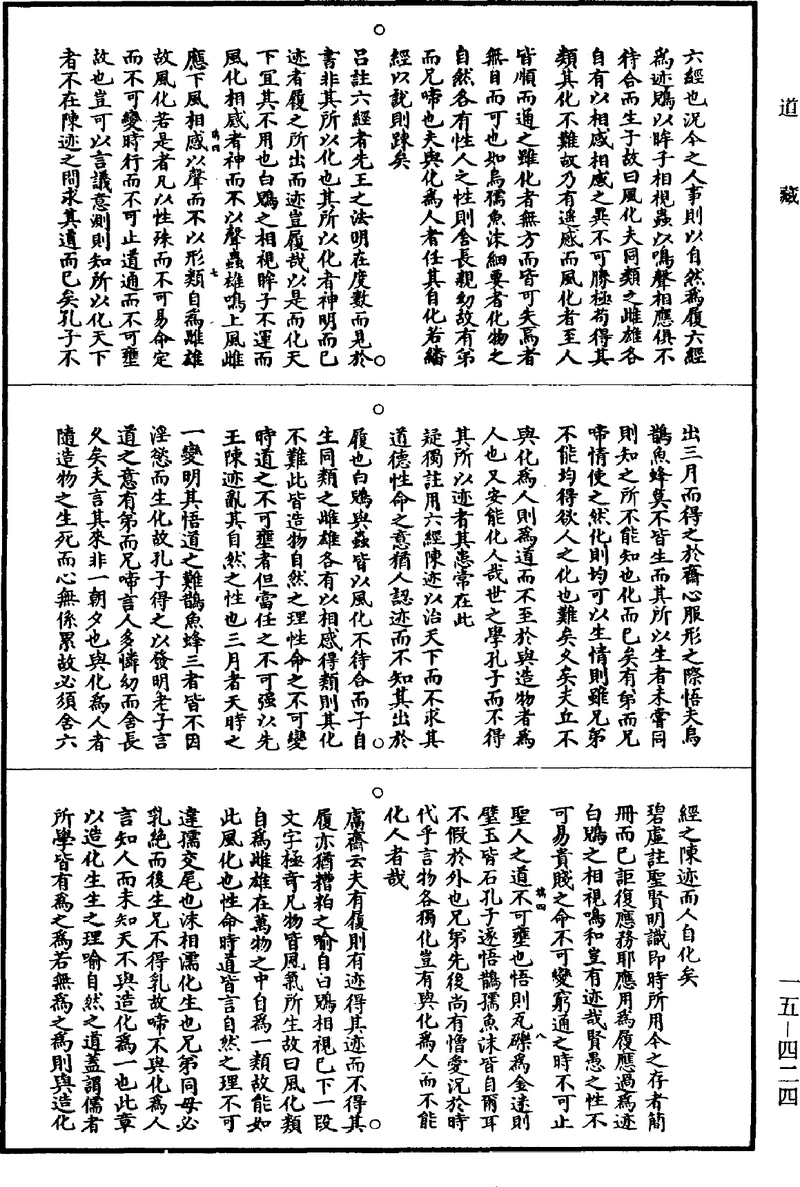 道藏
六經也況今之人事則以自然為履六經
為迹鶂以眸子相視蟲以鳴聲相應俱不
待合而生子故曰風化夫同類之雌雄各
自有以相感相感之異不可勝極苟得其
類其化不難故乃有遥感而風化者至人
皆順而通之雖化者無方而皆可失焉者
無自而可也如烏孺魚沫細要者化物之
自然各有性人之性則舍長親幼故有弟
而兄啼也夫與化為人者任其自化若繙
經以說則踈矣
吕註六經者先王之法明在度數而見於
書非其所以化也其所以化者神明而已
迹者履之所出而迹豈履哉以是而化天
下冝其不用也白鶂之相視眸子不運而
風化相感者神而不以聲蟲雄鳴上風雌
應下風相感以聲而不以形類自為雌雄
故風化若是者凡以性殊而不可易命定
而不可變時行而不可止道通而不可壅
故也豈可以言議意測則知所以化天下
者不在陳迹之間求其道而已矣孔子不
出三月而得之於齋心服形之際悟夫烏
鵲魚蜂莫不皆生而其所以生者未嘗同
則知之所不能知也化而已矣有弟而兄
啼情使之然化則均可以生情則雖兄弟
不能均得欲人之化也難矣久矣夫丘不
與化為人則為道而不至於與造物者為
人也又安能化人哉世之學孔子而不得
其所以迹者其患常在此
疑獨註用六經陳迹以治天下而不求其
道德性命之意猶人認迹而不知其出於
履也白鶂與蟲皆以風化不待合而子自
生同類之雌雄各有以相感得類則其化
不難此皆造物自然之理性命之不可變
時道之不可壅者但當任之不可強以先
王陳迹亂其自然之性也三月者天時之
一變明其悟道之難鵲魚蜂三者皆不因
淫慾而生化故孔子得之以發明老子言
道之意有弟而兄啼言人多憐幼而舍長
久矣夫言其來非一朝夕也與化為人者
隨造物之生死而心無係累故必須舍六
經之陳迹而人自化矣
碧虛註聖賢明識即時所用今之存者簡
冊而已詎復應務耶應用為履應過為迹
白鶂之相視鳴和豈有迹哉賢愚之性不
可易貴賤之命不可變窮通之時不可止
聖人之道不可壅也悟則瓦礫為金迷則
璧玉皆石孔子遂悟鵲孺魚沫皆自爾耳
不假於外也兄弟先後尚有憎愛況於時
代乎言物各獨化豈有與化為人而不能
化人者哉
鬳齋云夫有履則有迹得其迹而不得其
履亦猶糟粕之喻自白鶂相視已下一段
文字極奇凡物皆風氣所生故曰風化類
自為雌雄在萬物之中自為一類故能如
此風化也性命時道皆言自然之理不可
違孺交尾也沫相濡化生也兄弟同母必
乳絶而後生兄不得乳故啼不與化為人
言知人而未知天不與造化為一也此章
以造化生生之理喻自然之道蓋謂儒者
所學皆有為之為若無為之為則與造化
一五－四二四